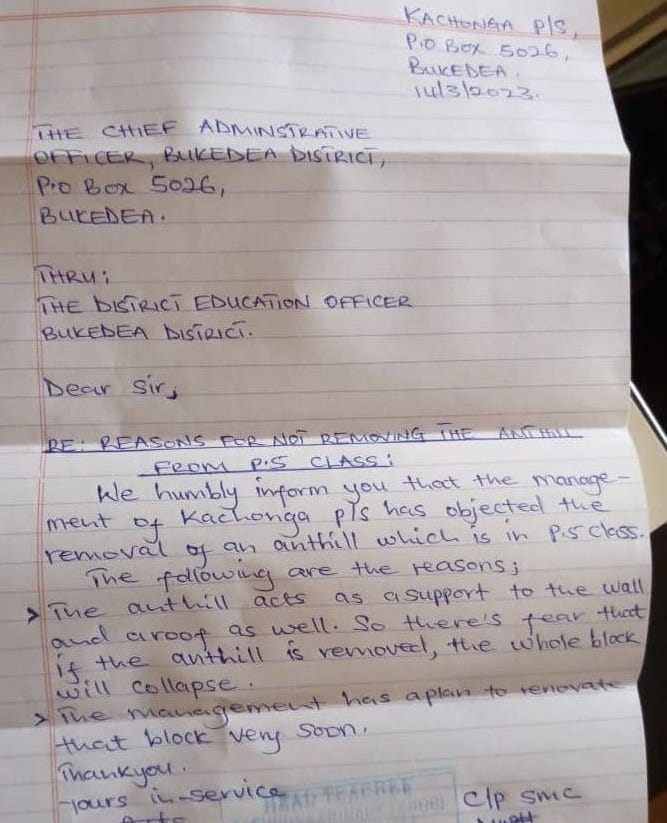 KACHONGA P/S,
P.O BOX 5026,
BUKEDEA.
14/3/2023.
THE CHIEF ADMINSTRATIVE
OFFICER, BUKEDEA DISTRICT,
P.O BOX 5026,
BUKEDEA.
THRU;
THE DISTRICT EDUCATION OFFICER
BUKEDEA DISTRICT.
Dear Sir,
RE: REASONS FOR NOT REMOVING THE ANTHILL
FROM P.5 CLASS:
We humbly inform you that the manage-
ment of Kachonga P/S has objected the
removal of an anthill which is in P.5 class.
The following are the reasons;
> The anthill acts as a support to the wall
and a roof as well. So there's fear that
if the anthill is removed, the whole block
will collapse.
> The management has a plan to renovate
that block very soon.
Thankyou.
Yours in-service
HEAD TEACHER
C/P SMC